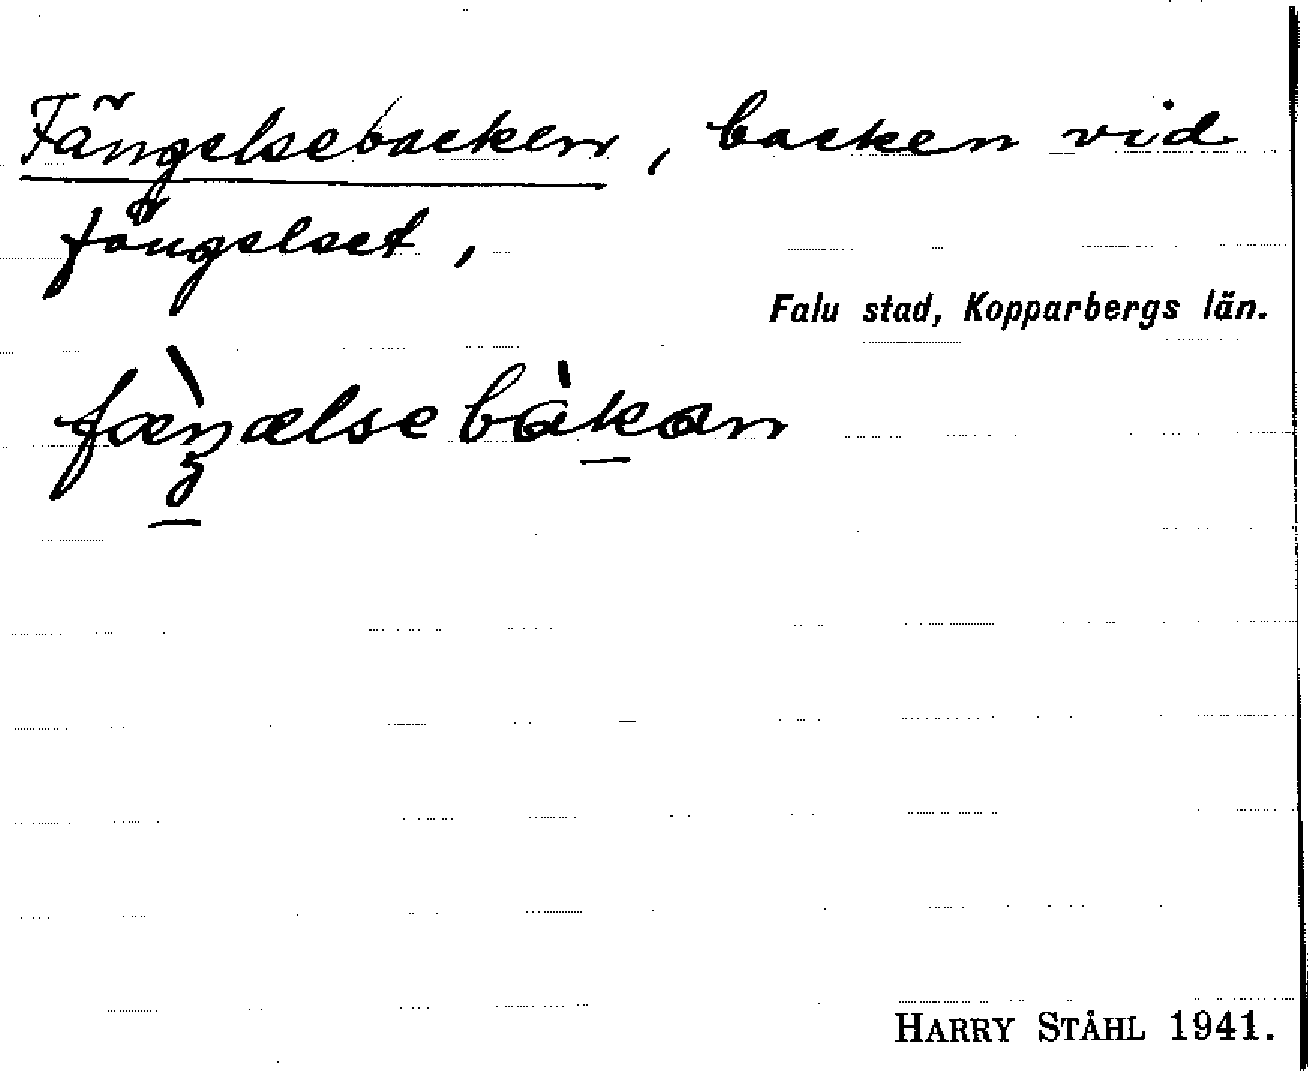 Fängelsebacken, backen vid
fängelset,
Falu stad, Kopparbergs län.
fæ̀ŋælsebàkan
HARRY STÅHL 1941.